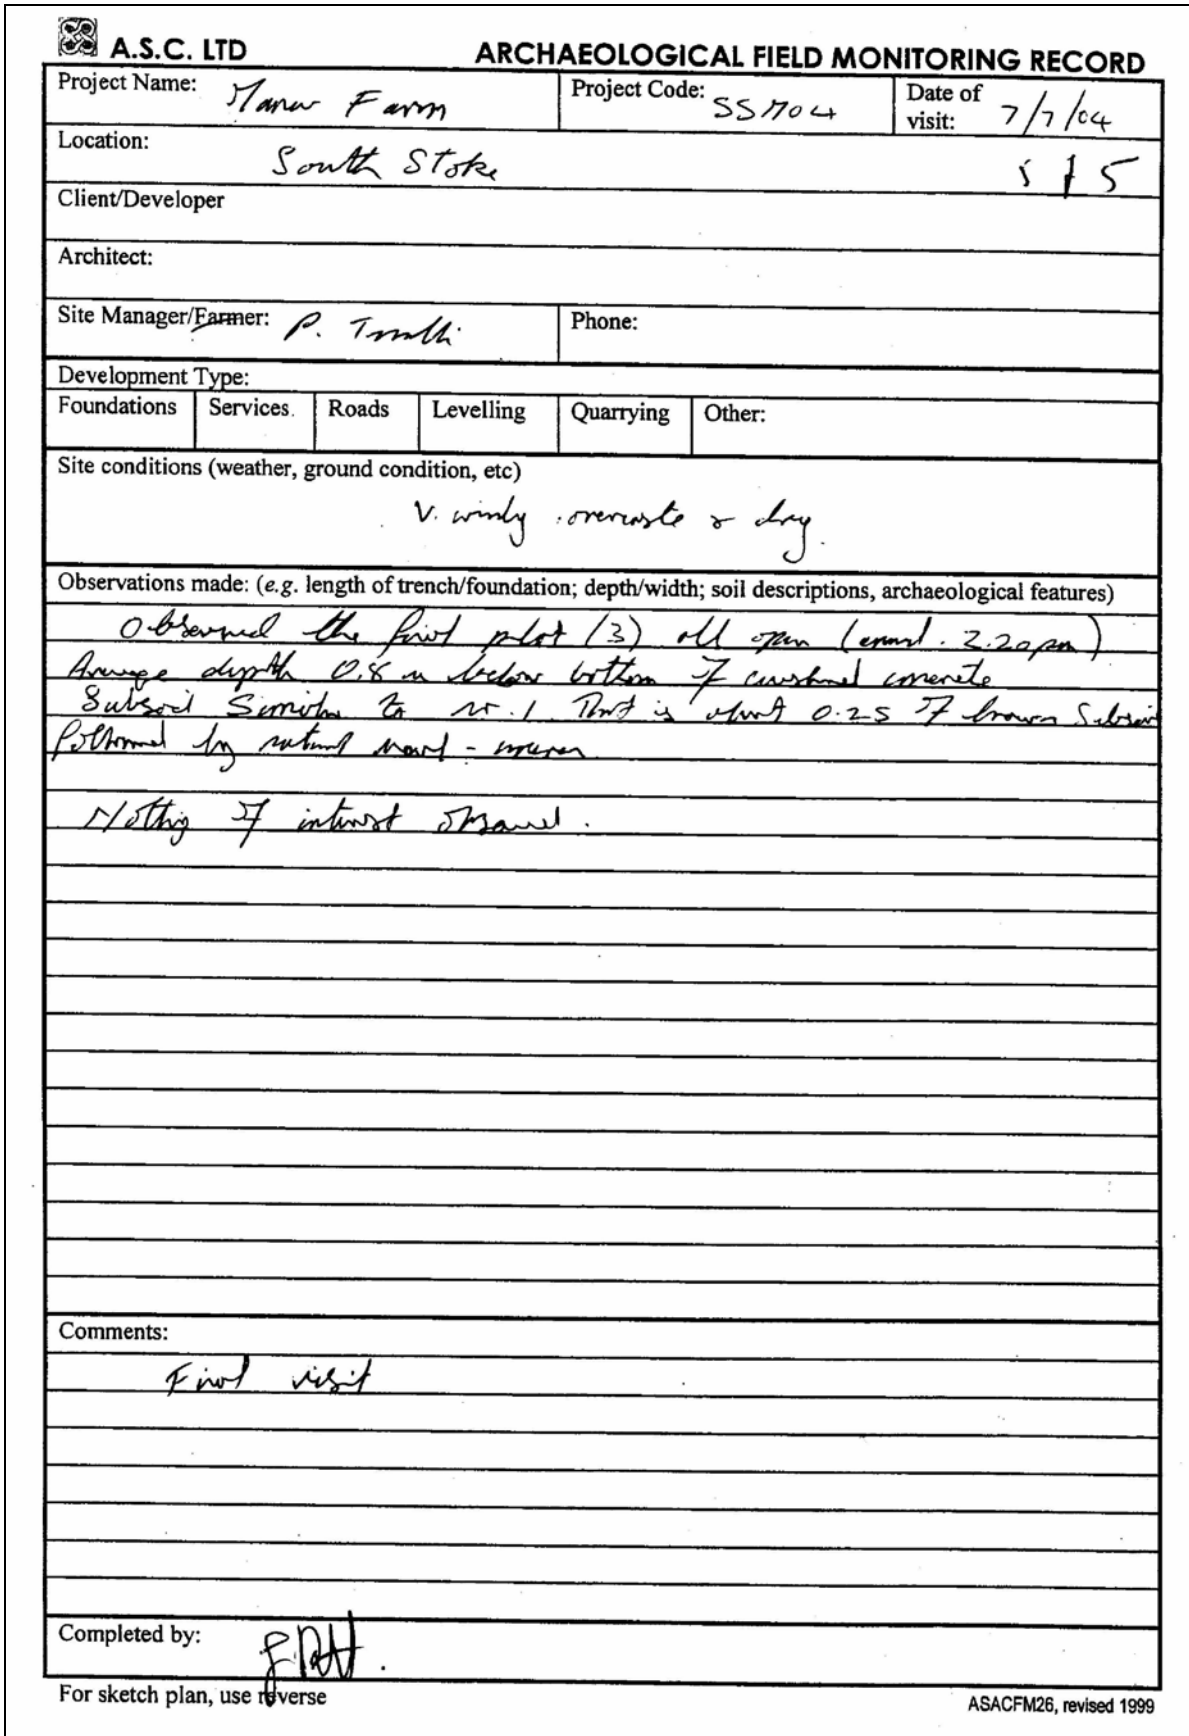 A.S.C. LTD
ARCHAEOLOGICAL FIELD MONITORING RECORD
Project Name: Manor Farm
Project Code: SSM04
Date of visit: 7/7/04
Location: South Stoke
5
Client/Developer
Architect:
Site Manager/Farmer: P.
Phone:
Development Type:
Foundations Services. Roads Levelling Quarrying Other:
Site conditions (weather, ground condition, etc)
V. windy overcaste & dry.
Observations made: (e.g. length of trench/foundation; depth/width; soil descriptions, archaeological features)
Observed the final plot (3) all open ( 2.20pm)
Average depth 0.8 m below bottom of crushed concrete
Subsoil Similar to nr. 1 That is about 0.25 of brown Subsoil
followed by natural
Nothing of interest observed.
Comments:
Final visit
Completed by:
For sketch plan, use reverse
ASACFM26, revised 1999